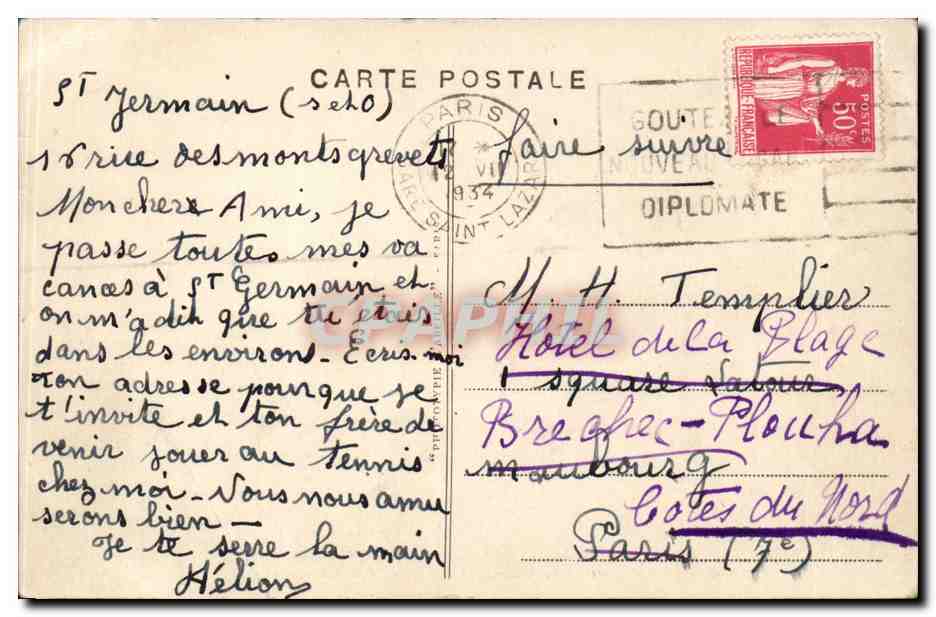 CARTE POSTALE
St Germain (S et O)
16 rue des monts grevets
Mon cher Ami, je
passe toutes mes va
cances à St Germain et
on m'a dit que tu étais
dans les environs - Ecris-moi
ton adresse pour que je
t'invite et ton frère de
venir jouer au tennis
chez moi - Nous nous amu
serons bien -
Je te serre la main
Hélion
"PHOTOTYPIE ABEILLE" - PARIS
PARIS
12 VII
1934
GARE SAINT-LAZARE
faire suivre
GOUTEZ LE
NOUVEAU
DIPLOMATE
REPUBLIQUE FRANÇAISE
50c
POSTES
M. H. Templier
Hôtel de la Plage
1 square Latour
Brehec-Plouha
maubourg
Cotes du Nord
Paris (7e)
CPAPHIL